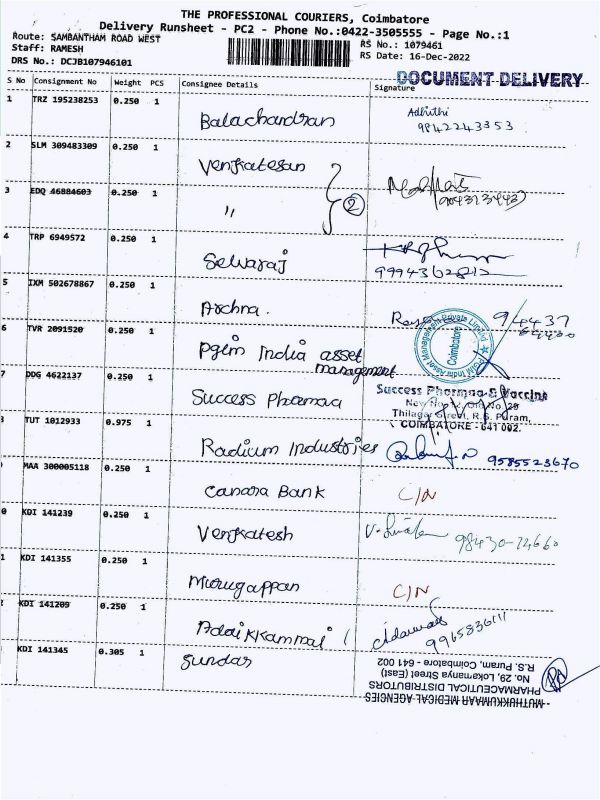 THE PROFESSIONAL COURIERS, Coimbatore
Delivery Runsheet - PC2 - Phone No.:0422-3505555 - Page No.:1
Route: SAMBANTHAM ROAD WEST
RS No.: 1079461
Staff: RAMESH
RS Date: 16-Dec-2022
DRS No.: DCJB107946101
DOCUMENT DELIVERY
S No Consignment No Weight PCS Consignee Details Signature
1 TRZ 195238253 0.250 1 Balachandran Adhithi
9842243353
2 SLM 309483309 0.250 1 Venkatesan
3 EDQ 46884603 0.250 1 " 2
4 TRP 6949572 0.250 1 Selvaraj
9994362812
5 IXM 502678867 0.250 1 Archna.
6 TVR 2091520 0.250 1 Pgim India asset management
PGIM India Asset Management Private Limited
Coimbatore
7 DDG 4622137 0.250 1 Success Pharmaa
Success Pharmaa & Vaccins
Thilagar Street, R.S. Puram,
COIMBATORE - 641 002.
TUT 1012933 0.975 1 Radium Industries 9585523670
MAA 300005118 0.250 1 Canara Bank C/N
0 KDI 141239 0.250 1 Venkatesh 98430-72660
1 KDI 141355 0.250 1 Murugappan C/N
KDI 141209 0.250 1 Adaikkammai
9965836111
KDI 141345 0.305 1 Sundar
MUTHUKKUMAAR MEDICAL AGENCIES
PHARMACEUTICAL DISTRIBUTORS
No. 29, Lokamanya Street (East)
R.S. Puram, Coimbatore - 641 002